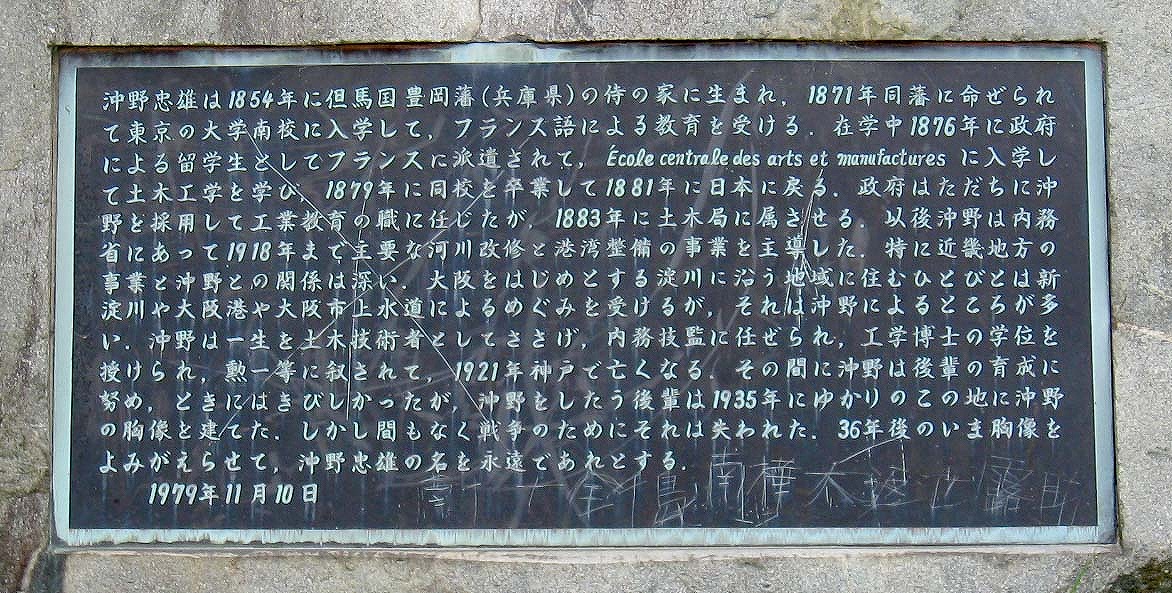 沖野忠雄は1854年に但馬国豊岡藩(兵庫県)の侍の家に生まれ，1871年同藩に命ぜられ
て東京の大学南校に入学して，フランス語による教育を受ける．在学中1876年に政府
による留学生としてフランスに派遣されて，École centrale des arts et manufactures に入学し
て土木工学を学び，1879年に同校を卒業して1881年に日本に戻る．政府はただちに沖
野を採用して工業教育の職に任じたが，1883年に土木局に属させる．以後沖野は内務
省にあって1918年まで主要な河川改修と港湾整備の事業を主導した．特に近畿地方の
事業と沖野との関係は深い．大阪をはじめとする淀川に沿う地域に住むひとびとは新
淀川や大阪港や大阪市上水道によるめぐみを受けるが，それは沖野によるところが多
い．沖野は一生を土木技術者としてささげ，内務技監に任ぜられ，工学博士の学位を
授けられ，勲一等に叙されて，1921年神戸で亡くなる．その間に沖野は後輩の育成に
努め，ときにはきびしかったが，沖野をしたう後輩は1935年にゆかりのこの地に沖野
の胸像を建てた．しかし間もなく戦争のためにそれは失われた．36年後のいま胸像を
よみがえらせて，沖野忠雄の名を永遠であれとする．
1979年11月10日
南樺木